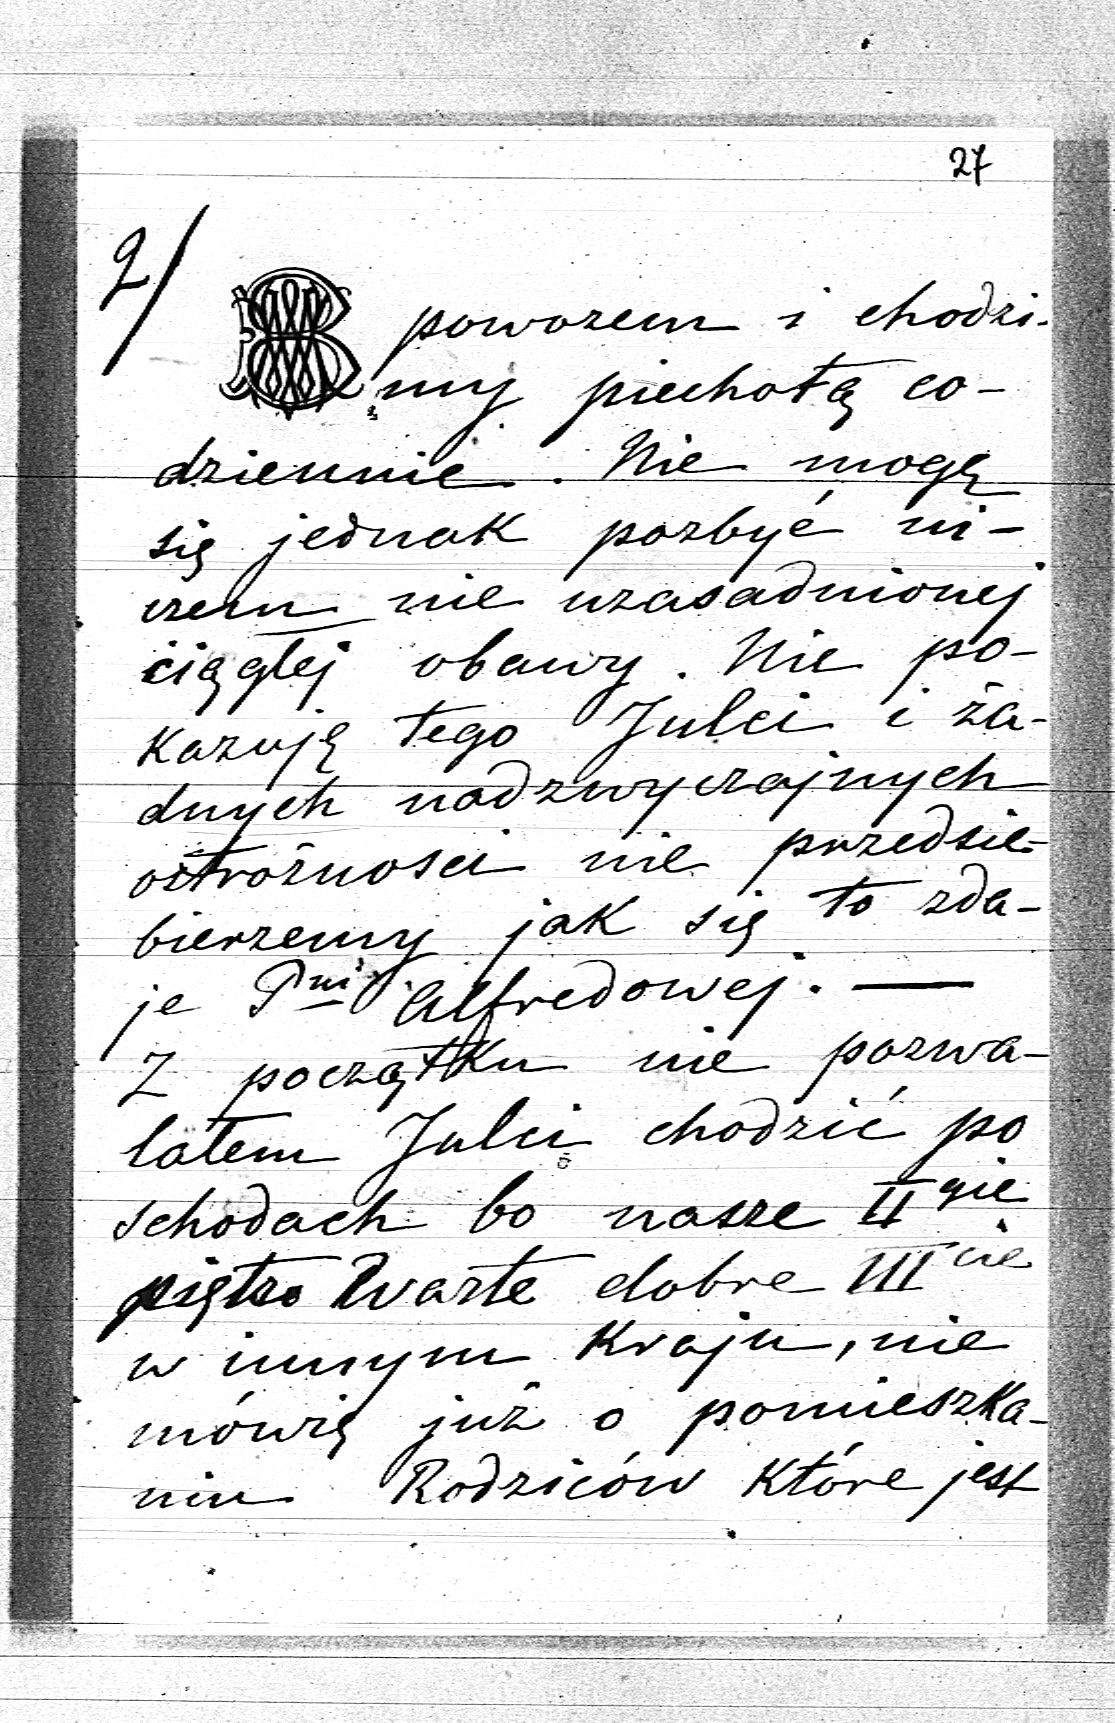 27
2/
powozem i chodzi-
my piechotą co-
dziennie. Nie mogę
się jednak pozbyć ni-
czem nie uzasadnionej
ciągłej obawy. Nie po-
kazuję tego Julci i ża-
dnych nadzwyczajnych
ostrożności nie przedsię-
bierzemy jak się to zda-
je Pni Alfredowej. —
Z początku nie pozwa-
lałem Julci chodzić po
schodach bo nasze IIgie
piętro warte dobre IIIcie
w innym kraju, nie
mówię już o pomieszka-
niu Rodziców które jest